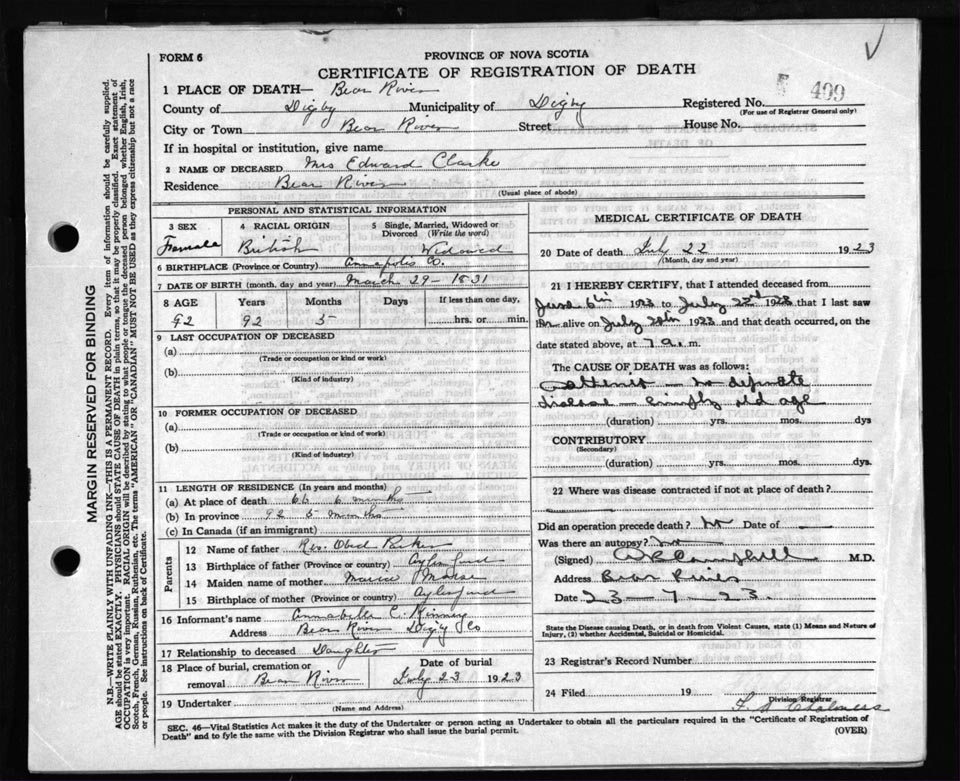 FORM 6
PROVINCE OF NOVA SCOTIA
CERTIFICATE OF REGISTRATION OF DEATH
499
1 PLACE OF DEATH— Bear River
County of Digby Municipality of Digby Registered No.
(For use of Registrar General only)
City or Town Bear River Street House No.
If in hospital or institution, give name
2 NAME OF DECEASED Mrs Edward Clarke
Residence Bear River
(Usual place of abode)
PERSONAL AND STATISTICAL INFORMATION
3 SEX 4 RACIAL ORIGIN 5 Single, Married, Widowed or Divorced (Write the word)
Female British Widowed
6 BIRTHPLACE (Province or Country) Annapolis Co.
7 DATE OF BIRTH (month, day and year) March 29 - 1831
8 AGE Years Months Days If less than one day,
92 92 5 hrs. or min.
9 LAST OCCUPATION OF DECEASED
(a)
(Trade or occupation or kind or work)
(b)
(Kind of industry)
10 FORMER OCCUPATION OF DECEASED
(a)
(Trade or occupation or kind of work)
(b)
(Kind of industry)
11 LENGTH OF RESIDENCE (In years and months)
(a) At place of death 66 6 months
(b) In province 92 5 months
(c) In Canada (if an immigrant)
Parents
12 Name of father Rev. Obed Parker
13 Birthplace of father (Province or country) Aylesford
14 Maiden name of mother Morse
15 Birthplace of mother (Province or country) Aylesford
16 Informant's name Annabelle C. Kinney
Address Bear River Digby Co
17 Relationship to deceased Daughter
18 Place of burial, cremation or removal Bear River Date of burial July 23 1923
19 Undertaker
(Name and Address)
MEDICAL CERTIFICATE OF DEATH
20 Date of death July 22 1923
(Month, day and year)
21 I HEREBY CERTIFY, that I attended deceased from
June 6th 1923 to July 22nd 1923 that I last saw
her alive on July 20th 1923 and that death occurred, on the
date stated above, at 7 a. m.
The CAUSE OF DEATH was as follows:
no definite
disease - simply old age
(duration) yrs. mos. dys
CONTRIBUTORY
(Secondary)
(duration) yrs. mos. dys.
22 Where was disease contracted if not at place of death?
Did an operation precede death? no Date of
Was there an autopsy? no
(Signed) Campbell M.D.
Address Bear River
Date 23-7-23.
State the Disease causing Death, or in death from Violent Causes, state (1) Means and Nature of
Injury, (2) whether Accidental, Suicidal or Homicidal.
23 Registrar's Record Number
24 Filed 19
Division Registrar
SEC. 46—Vital Statistics Act makes it the duty of the Undertaker or person acting as Undertaker to obtain all the particulars required in the "Certificate of Registration of
Death" and to fyle the same with the Division Registrar who shall issue the burial permit.
(OVER)
MARGIN RESERVED FOR BINDING
N.B.—WRITE PLAINLY WITH UNFADING INK—THIS IS A PERMANENT RECORD. Every item of information should be carefully supplied.
AGE should be stated EXACTLY. PHYSICIANS should STATE CAUSE OF DEATH in plain terms, so that it may be properly classified. Exact statement of
OCCUPATION is very important. RACIAL ORIGIN will be described by stating to what people or tongue the deceased person belonged whether English, Irish,
Scotch, French, German, Russian, Ruthenian, etc. The terms "AMERICAN" or "CANADIAN" MUST NOT BE USED as they express citizenship but not a race
or people. See instructions on back of Certificate.